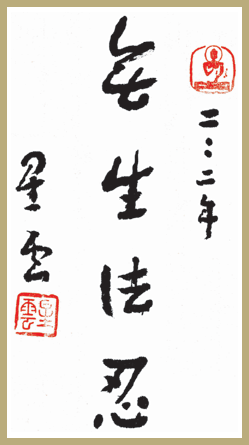 二〇〇二年
無生法忍
星雲
星雲